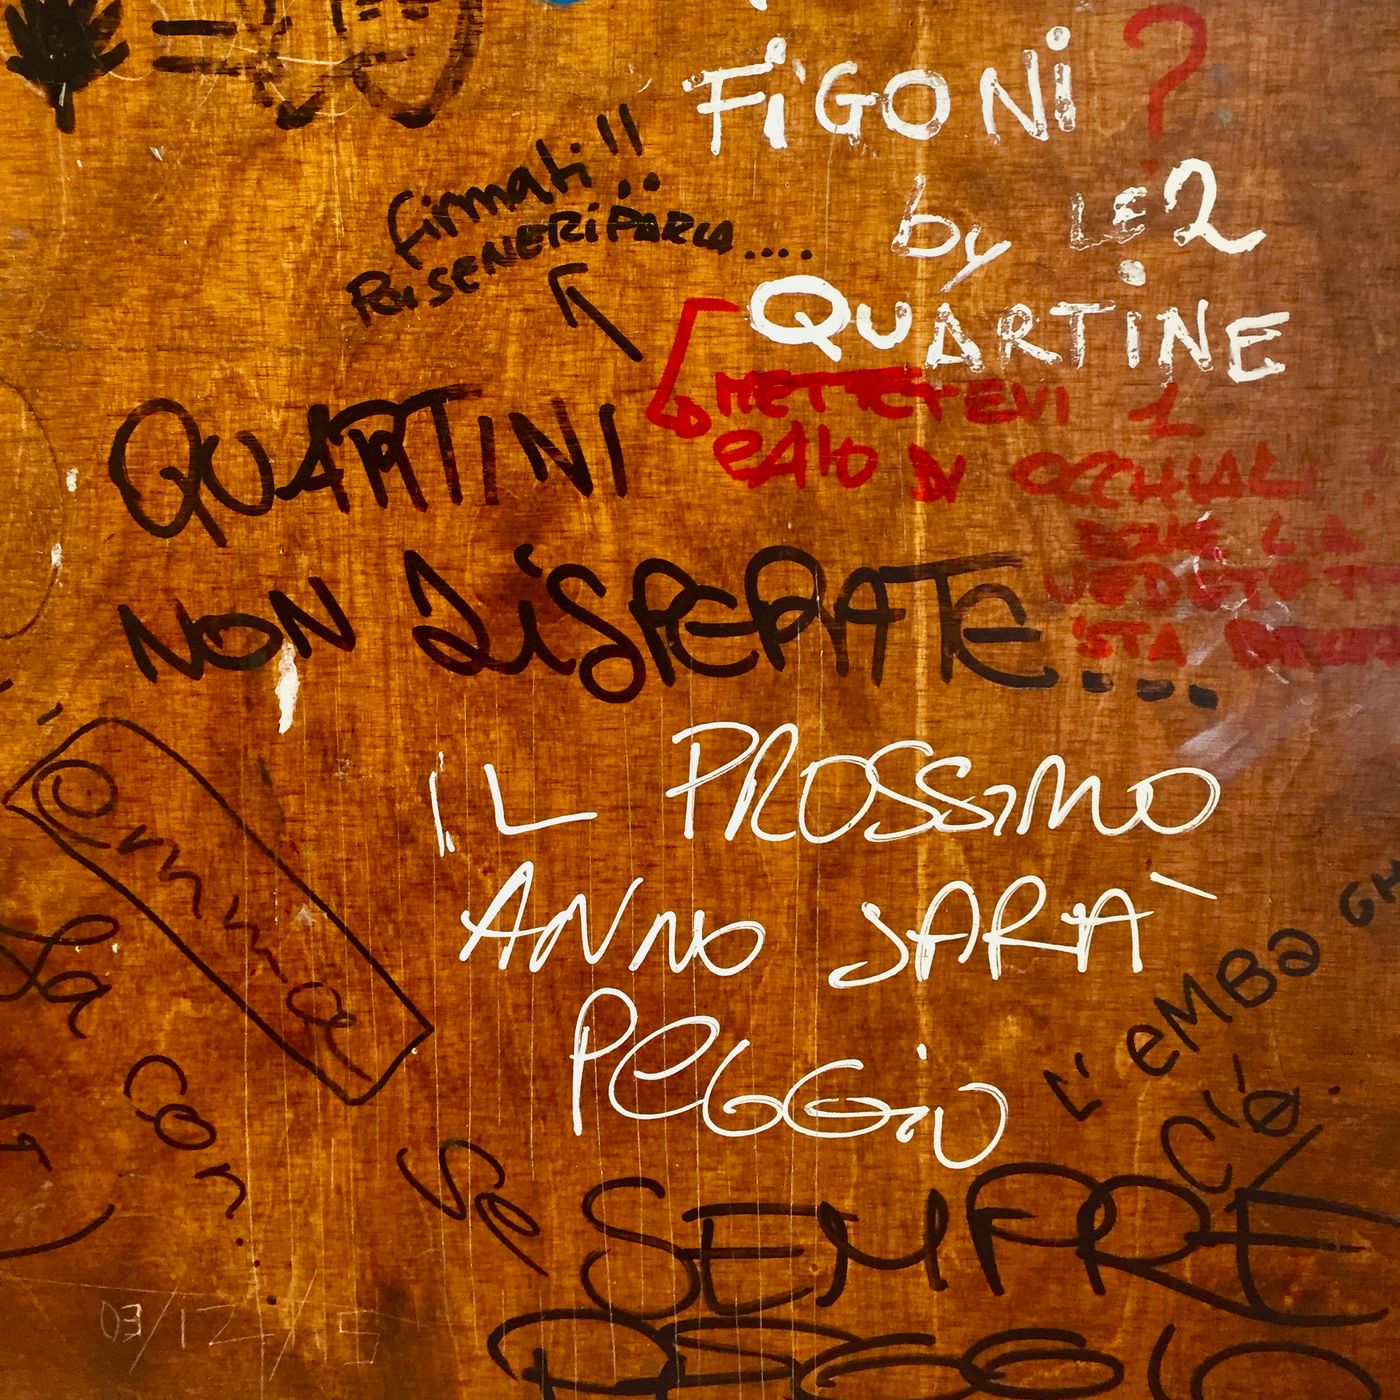 FiGONi ?
by LE 2
QUARTiNE
firmati !!
POi SE NE RiPARLA....
METTETEVI 1
PAIO DI OCCHIALI !
VEDETE
'STA
QUARTINI
NON DiSPERATE...
iL PROSSiMO
ANNO SARÀ
PeGGiO
Omma
La
Con
Se
L' eMBa
Ciò
SEMPRE
PEGGIO
03/12/15